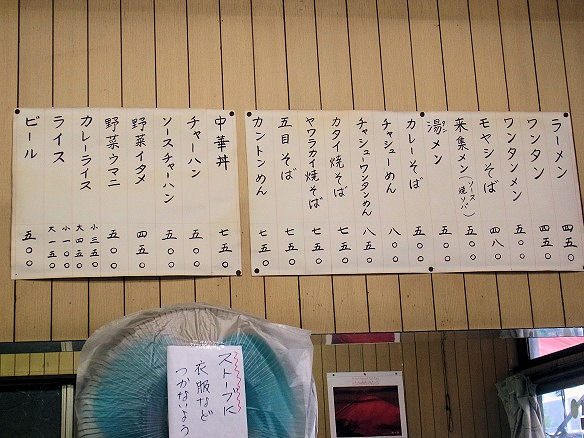 ラーメン 四五〇
ワンタン 四五〇
ワンタンメン 五〇〇
モヤシそば 四八〇
来集メン(ソース焼ソバ) 五〇〇
湯メン 五〇〇
カレーそば 五〇〇
チャシューめん 八〇〇
チャシューワンタンめん 八五〇
カタイ焼そば 七五〇
ヤワラカイ焼そば 七五〇
五目そば 七五〇
カントンめん 七五〇
中華丼 七五〇
チャーハン 五〇〇
ソースチャーハン 五〇〇
野菜イタメ 四五〇
野菜ウマニ 五〇〇
カレーライス 小三五〇 大四五〇
ライス 小一〇〇 大一五〇
ビール 五〇〇
ストーブに
衣服など
つかないよう